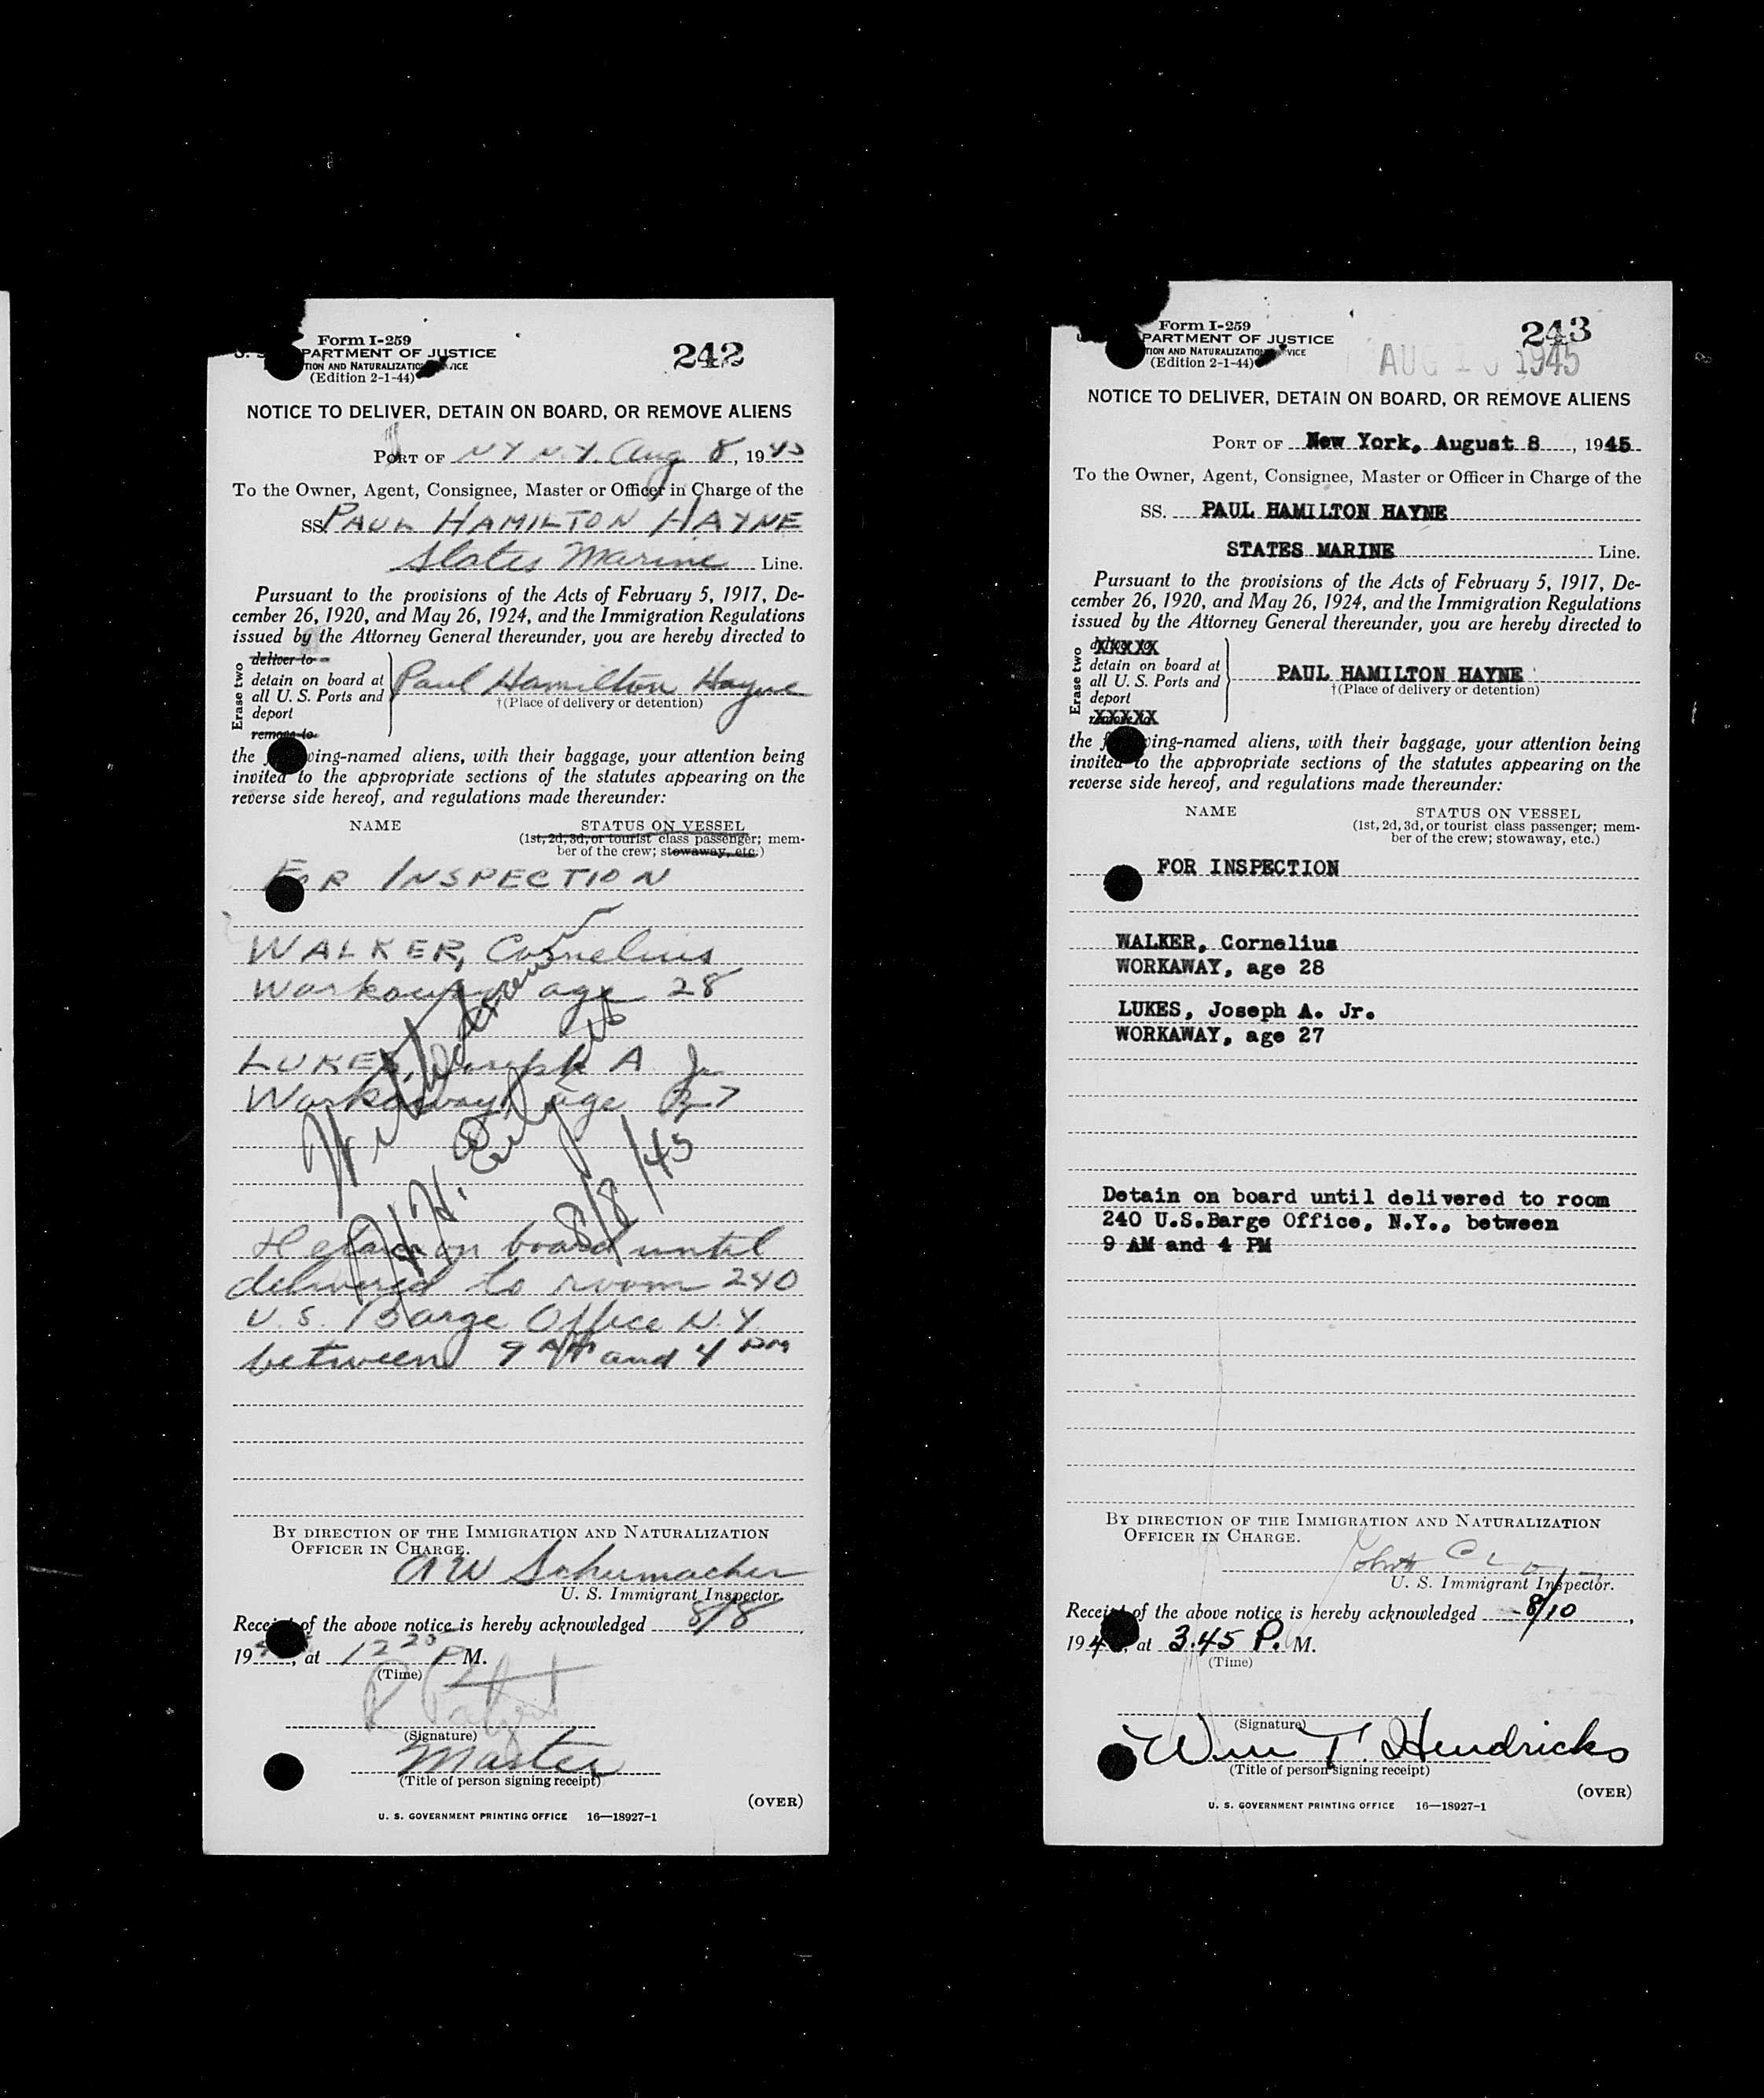 Form I-259
PARTMENT OF JUSTICE
TION AND NATURALIZATION VICE
(Edition 2-1-44)
242
NOTICE TO DELIVER, DETAIN ON BOARD, OR REMOVE ALIENS
PORT OF N Y N.Y. Aug 8, 1945
To the Owner, Agent, Consignee, Master or Officer in Charge of the
SS. PAUL HAMILTON HAYNE
States Marine Line.
Pursuant to the provisions of the Acts of February 5, 1917, De-
cember 26, 1920, and May 26, 1924, and the Immigration Regulations
issued by the Attorney General thereunder, you are hereby directed to
Erase two
deliver to
detain on board at
all U. S. Ports and
deport
remove to
Paul Hamilton Hayne
†(Place of delivery or detention)
the following-named aliens, with their baggage, your attention being
invited to the appropriate sections of the statutes appearing on the
reverse side hereof, and regulations made thereunder:
NAME STATUS ON VESSEL
(1st, 2d, 3d, or tourist class passenger; mem-
ber of the crew; stowaway, etc.)
FOR INSPECTION
WALKER, Cornelius
Workaway age 28
LUKES, Joseph A Jr
Workaway, age 27
Withdrawn
8/8/45
Detain on board until
delivered to room 240
U.S. Barge Office N.Y.
between 9 AM and 4 PM
BY DIRECTION OF THE IMMIGRATION AND NATURALIZATION
OFFICER IN CHARGE.
A W Schumacher
U. S. Immigrant Inspector.
Receipt of the above notice is hereby acknowledged 8/8,
19 , at 12 25 P M.
(Time)
(Signature)
Master
(Title of person signing receipt)
(OVER)
U. S. GOVERNMENT PRINTING OFFICE 16—18927-1
Form I-259
PARTMENT OF JUSTICE
TION AND NATURALIZATION VICE
(Edition 2-1-44)
243
AUG 10 1945
NOTICE TO DELIVER, DETAIN ON BOARD, OR REMOVE ALIENS
PORT OF New York, August 8, 1945
To the Owner, Agent, Consignee, Master or Officer in Charge of the
SS. PAUL HAMILTON HAYNE
STATES MARINE Line.
Pursuant to the provisions of the Acts of February 5, 1917, De-
cember 26, 1920, and May 26, 1924, and the Immigration Regulations
issued by the Attorney General thereunder, you are hereby directed to
Erase two
XXXXX
detain on board at
all U. S. Ports and
deport
XXXXX
PAUL HAMILTON HAYNE
†(Place of delivery or detention)
the following-named aliens, with their baggage, your attention being
invited to the appropriate sections of the statutes appearing on the
reverse side hereof, and regulations made thereunder:
NAME STATUS ON VESSEL
(1st, 2d, 3d, or tourist class passenger; mem-
ber of the crew; stowaway, etc.)
FOR INSPECTION
WALKER, Cornelius
WORKAWAY, age 28
LUKES, Joseph A. Jr.
WORKAWAY, age 27
Detain on board until delivered to room
240 U.S.Barge Office, N.Y., between
9 AM and 4 PM
BY DIRECTION OF THE IMMIGRATION AND NATURALIZATION
OFFICER IN CHARGE.
U. S. Immigrant Inspector.
Receipt of the above notice is hereby acknowledged 8/10,
194 , at 3.45 P. M.
(Time)
(Signature)
Wm T. Hendricks
(Title of person signing receipt)
(OVER)
U. S. GOVERNMENT PRINTING OFFICE 16—18927-1